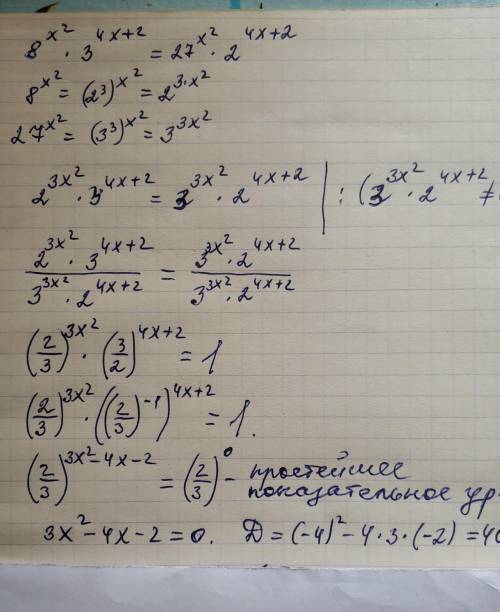 8^{x^2} · 3^{4x+2} = 27^{x^2} · 2^{4x+2}
8^{x^2} = (2^3)^{x^2} = 2^{3·x^2}
27^{x^2} = (3^3)^{x^2} = 3^{3x^2}
2^{3x^2} · 3^{4x+2} = 3^{3x^2} · 2^{4x+2} | : (3^{3x^2} · 2^{4x+2} ≠
\frac{2^{3x^2} · 3^{4x+2}}{3^{3x^2} · 2^{4x+2}} = \frac{3^{3x^2} · 2^{4x+2}}{3^{3x^2} · 2^{4x+2}}
(\frac{2}{3})^{3x^2} · (\frac{3}{2})^{4x+2} = 1
(\frac{2}{3})^{3x^2} · ((\frac{2}{3})^{-1})^{4x+2} = 1.
(\frac{2}{3})^{3x^2-4x-2} = (\frac{2}{3})^0 – простейшее
показательное ур-
3x^2-4x-2=0. D = (-4)^2-4·3·(-2) = 40